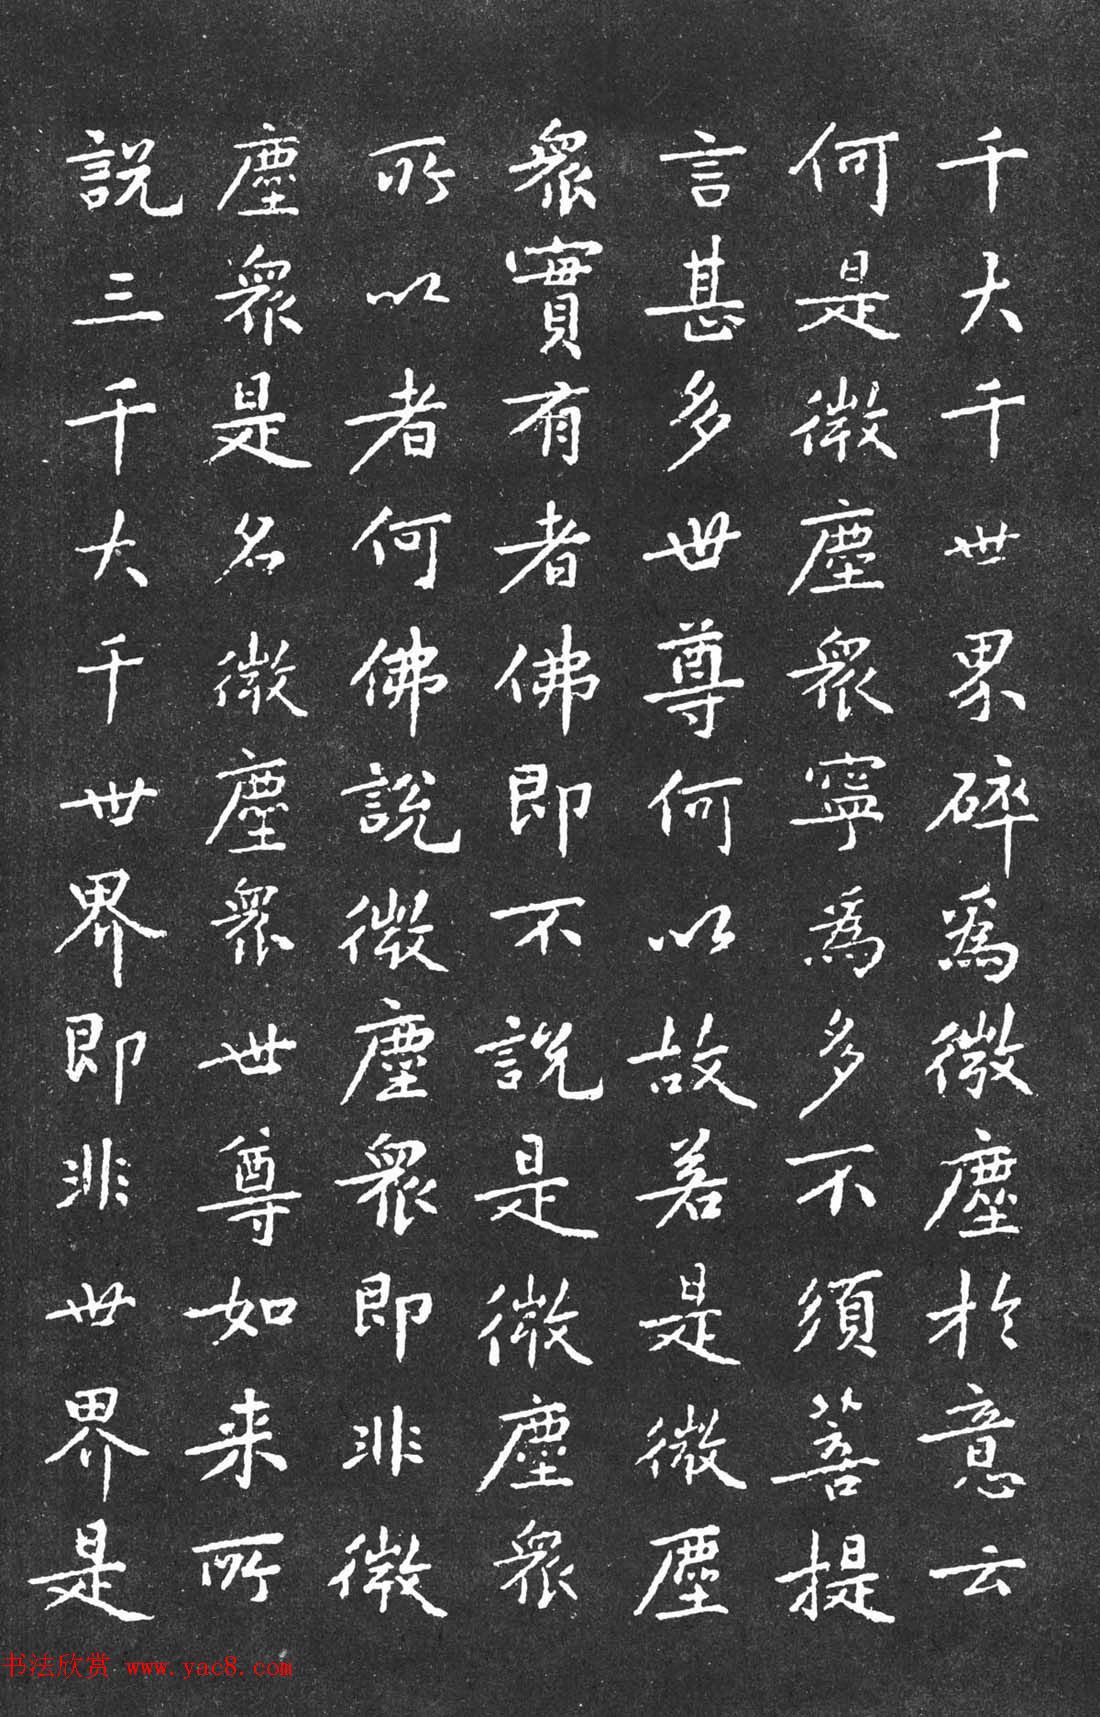 千大千世界碎為微塵於意云
何是微塵眾寧為多不須菩提
言甚多世尊何以故若是微塵
眾實有者佛即不說是微塵眾
所以者何佛說微塵眾即非微
塵眾是名微塵眾世尊如来所
說三千大千世界即非世界是
书法欣赏 www.yac8.com